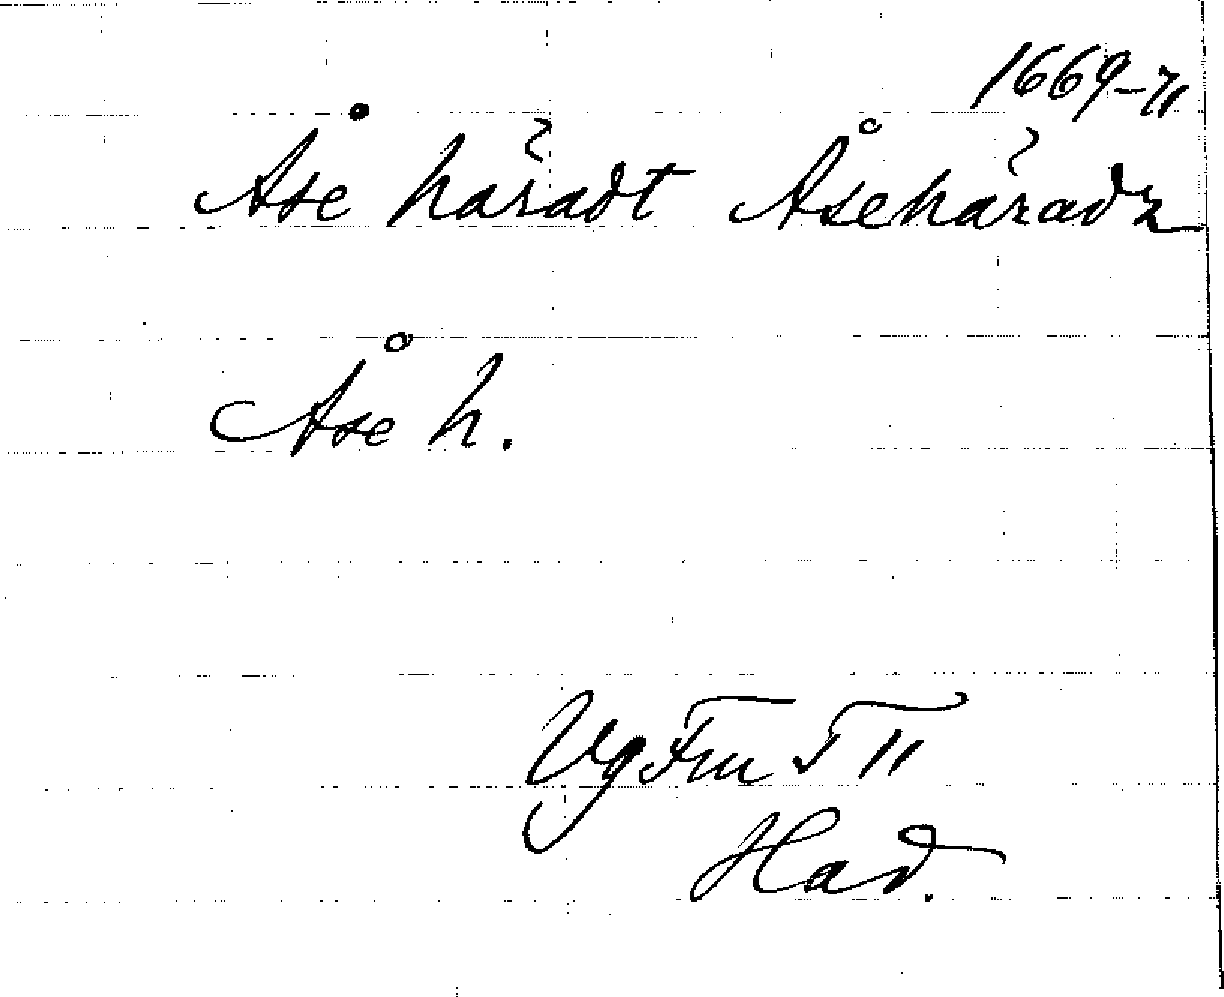 1669-71
Åse häradt Åsehäradz
Åse h.
Vg Fm T II
Had.